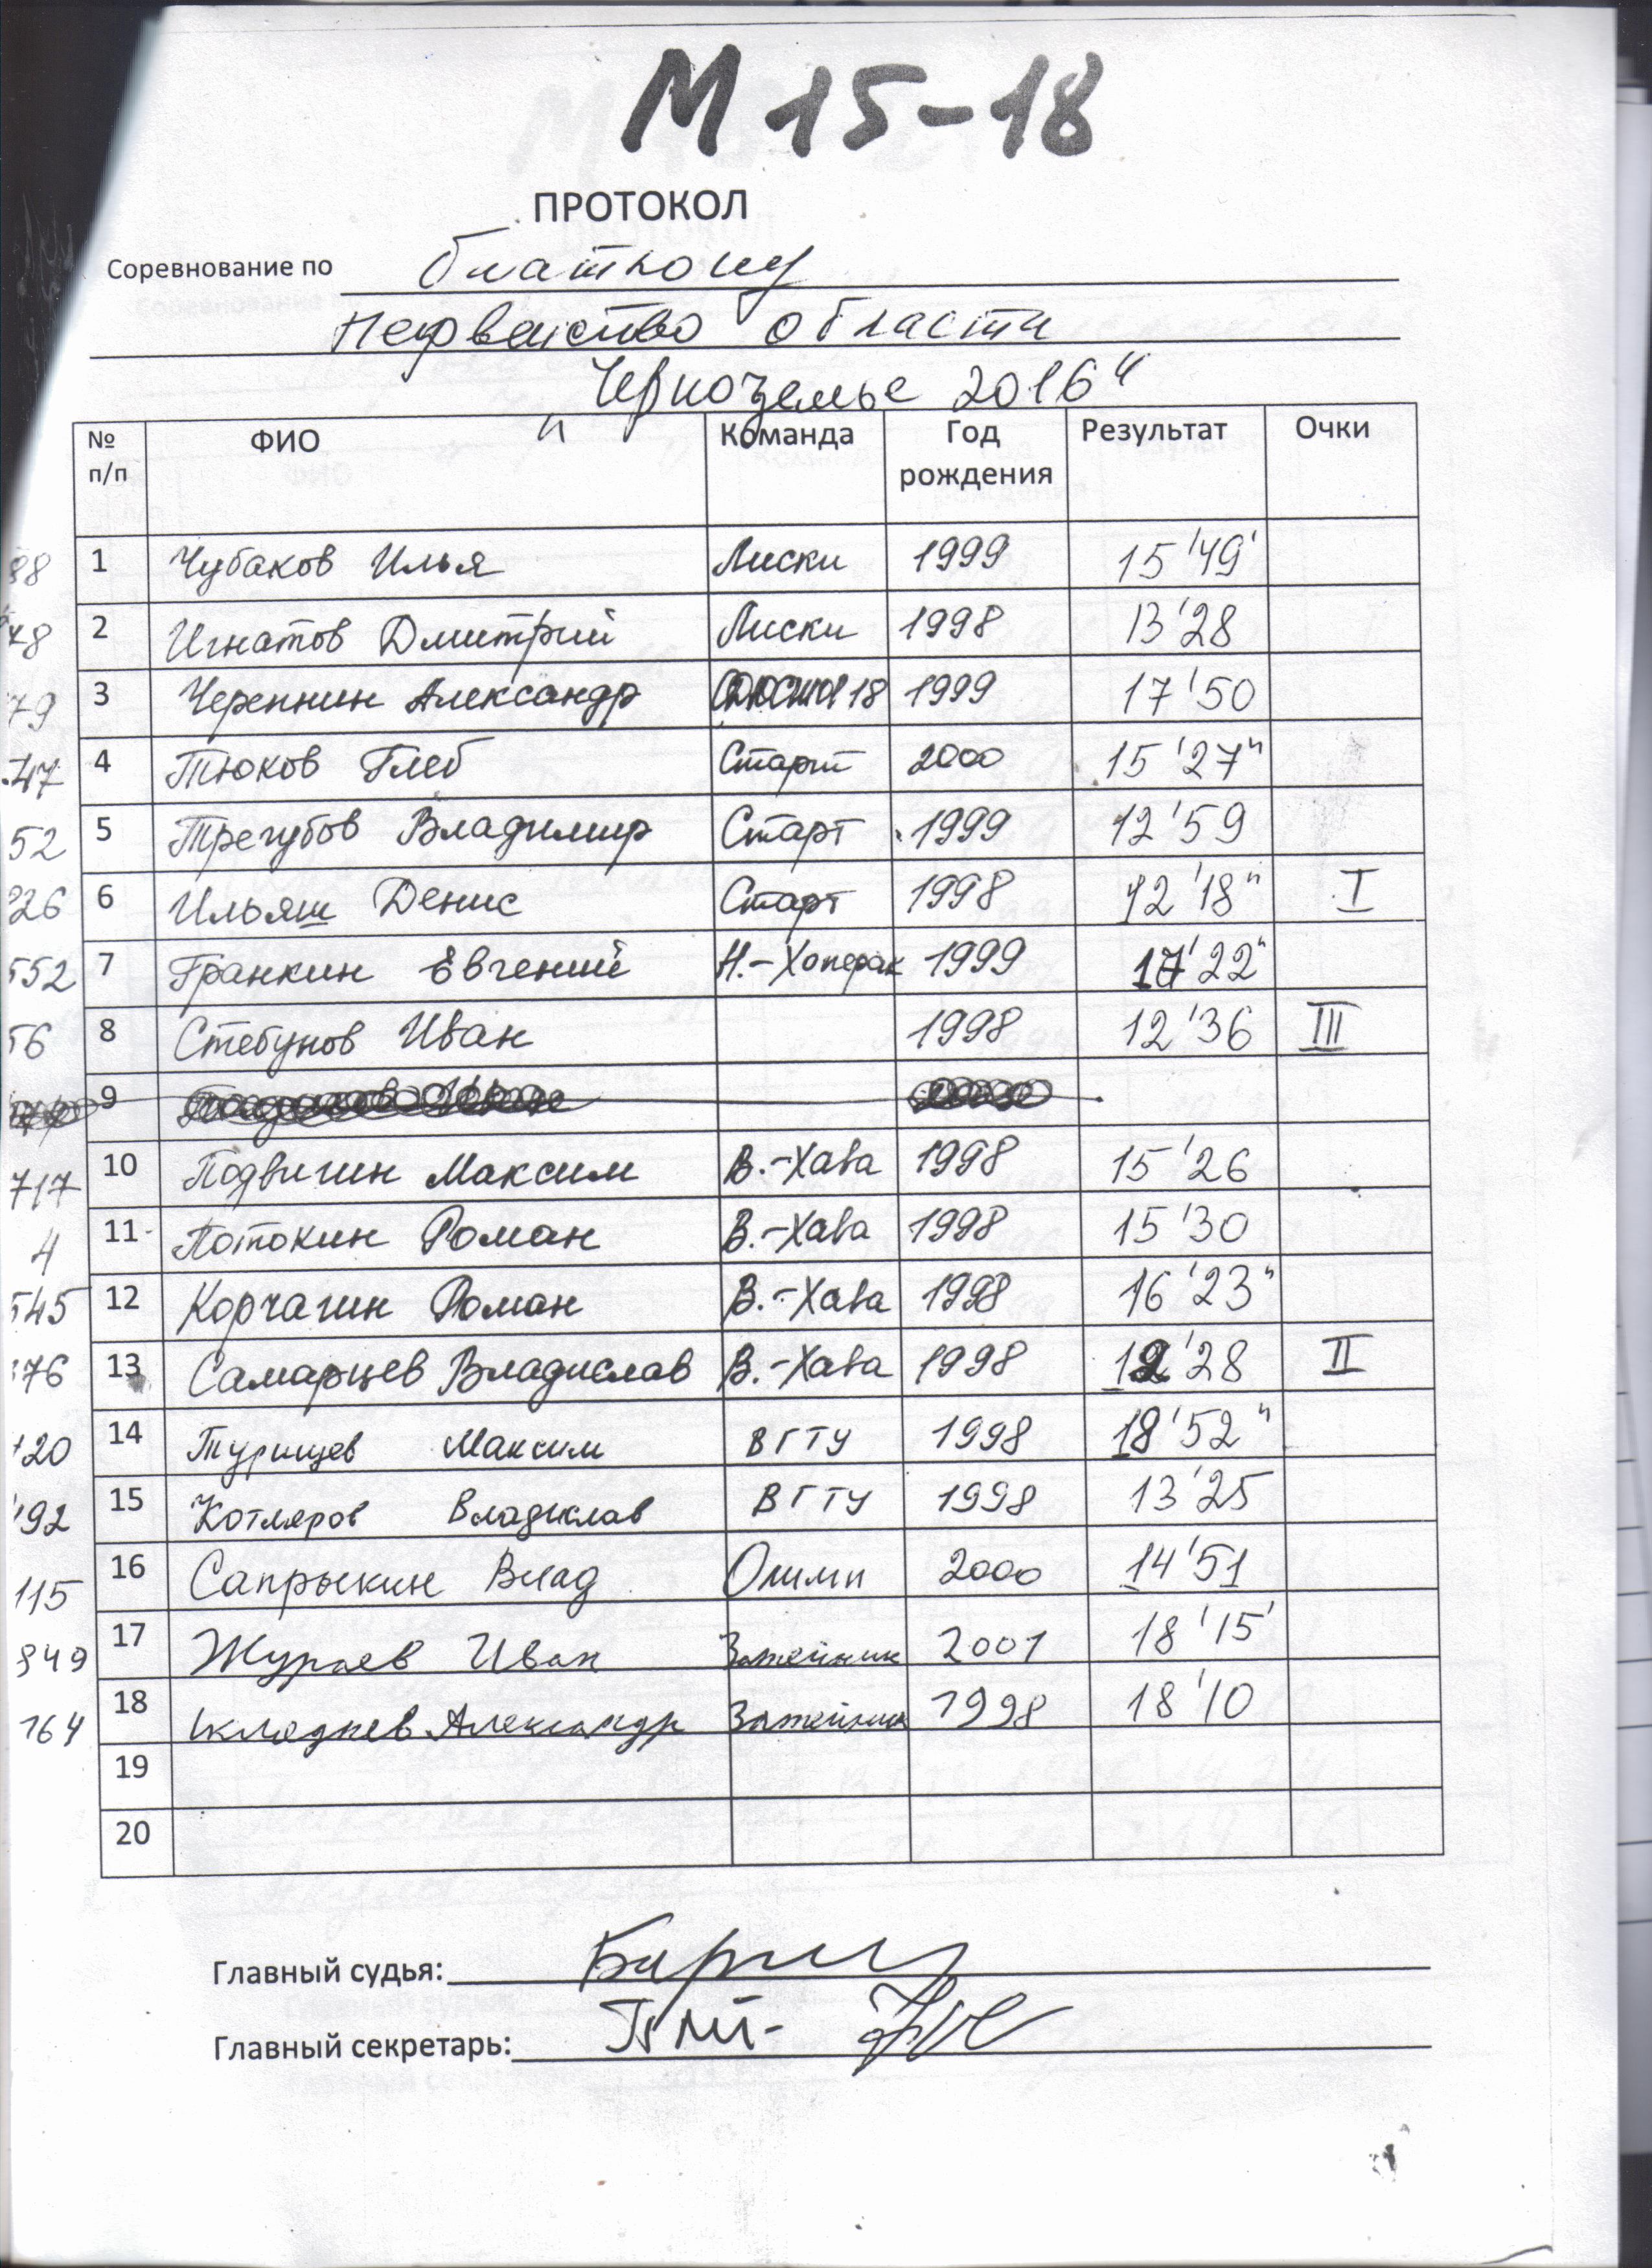 М 15-18
ПРОТОКОЛ
Соревнование по биатлону
Первенство области
"Черноземье 2016"
№ п/п ФИО Команда Год рождения Результат Очки
88 1 Чубаков Илья Лиски 1999 15'49'
78 2 Игнатов Дмитрий Лиски 1998 13'28
79 3 Черепнин Александр 18 1999 17'50
47 4 Тюков Глеб Старт 2000 15'27"
52 5 Трегубов Владимир Старт 1999 12'59
26 6 Ильяш Денис Старт 1998 12'18" I
552 7 Гранкин Евгений Н.-Хоперск 1999 17'22"
56 8 Стебунов Иван 1998 12'36 III
9
717 10 Подвигин Максим В.-Хава 1998 15'26
4 11 Потокин Роман В.-Хава 1998 15'30
545 12 Корчагин Роман В.-Хава 1998 16'23"
76 13 Самарцев Владислав В.-Хава 1998 12'28 II
20 14 Турищев Максим ВГТУ 1998 18'52"
92 15 Котляров Владислав ВГТУ 1998 13'25
115 16 Сапрыкин Влад Олимп 2000 14'51
949 17 Жураев Иван Затейник 2001 18'15'
164 18 Александр Затейник 1998 18'10
19
20
Главный судья:
Главный секретарь: